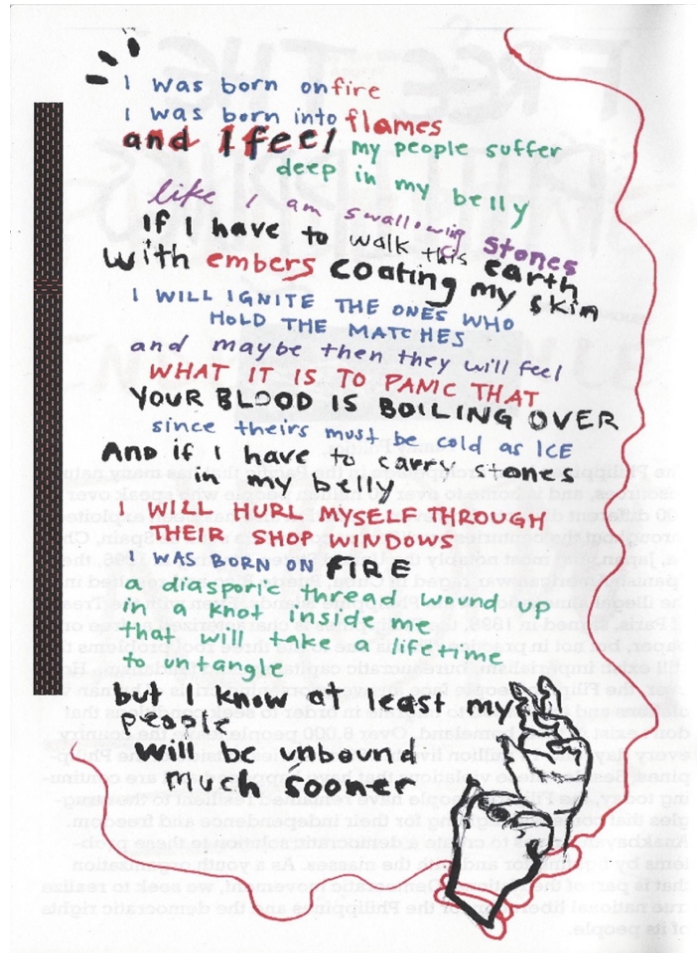 I was born on fire
I was born into flames
and I feel my people suffer
deep in my belly
like I am swallowing stones
If I have to walk this earth
with embers coating my skin
I WILL IGNITE THE ONES WHO
HOLD THE MATCHES
and maybe then they will feel
WHAT IT IS TO PANIC THAT
YOUR BLOOD IS BOILING OVER
since theirs must be cold as ICE
And if I have to carry stones
in my belly
I WILL HURL MYSELF THROUGH
THEIR SHOP WINDOWS
I WAS BORN ON FIRE
a diasporic thread wound up
in a knot inside me
that will take a lifetime
to untangle
but I know at least my
people
will be unbound
much sooner